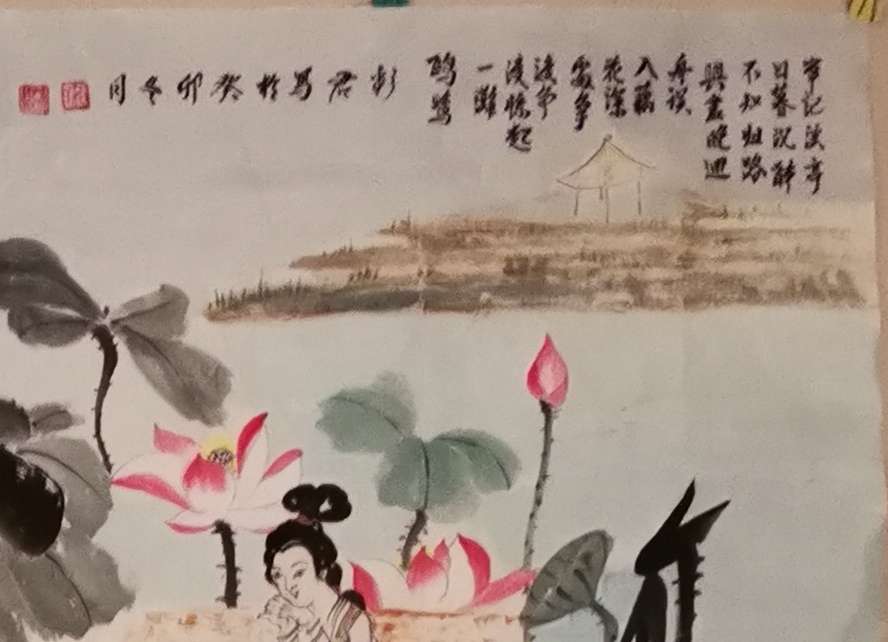 常记溪亭
日暮沉醉
不知归路
興盡晚迴
舟误
入藕
花深
處争
渡争
渡惊起
一滩
鸥鹭
君写於癸卯冬月